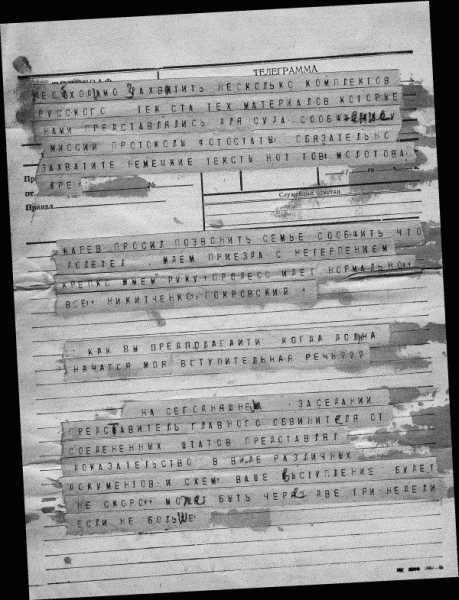 ТЕЛЕГРАММА
НЕОБХОДИМО ЗАХВАТИТЬ НЕСКОЛЬКО КОМПЛЕКТОВ
РУССКОГО ТЕКСТА ТЕХ МАТЕРИАЛОВ КОТОРЫЕ
НАМИ ПРЕДСТАВЛЯЛИСЬ ДЛЯ СУДА СООБЩЕНИЕ
МИССИИ ПРОТОКОЛЫ ФОТОСТАТЫ ОБЯЗАТЕЛЬНО
ЗАХВАТИТЕ НЕМЕЦКИЕ ТЕКСТЫ НОТ ТОВ МОЛОТОВА
от №
Принял
Служебные отметки
КАРЕВ ПРОСИЛ ПОЗВОНИТЬ СЕМЬЕ СООБЩИТЬ ЧТО
ДОЛЕТЕЛ ЖДЕМ ПРИЕЗДА С НЕТЕРПЕНИЕМ
КРЕПКО ЖМЕМ РУКУ ПРОЦЕСС ИДЕТ НОРМАЛЬНО
ВСЕ НИКИТЧЕНКО ПОКРОВСКИЙ
КАК ВЫ ПРЕДПОЛАГАЙТИ КОГДА ДОЛЖНА
НАЧАТСЯ МОЯ ВСТУПИТЕЛЬНАЯ РЕЧЬ???
НА СЕГОДНЯШНЕМ ЗАСЕДАНИИ
ПРЕДСТАВИТЕЛЬ ГЛАВНОГО ОБВИНИТЕЛЯ ОТ
СОЕДЕНЕННЫХ ШТАТОВ ПРЕДСТАВЛЯЛ
ДОКАЗАТЕЛЬСТВО В ВИДЕ РАЗЛИЧНЫХ
ДОКУМЕНТОВ И СХЕМ ВАШЕ ВЫСТУПЛЕНИЕ БУДЕТ
НЕ СКОРО МОЖЕТ БЫТЬ ЧЕРЕЗ ДВЕ ТРИ НЕДЕЛИ
ЕСЛИ НЕ БОЛЬШЕ